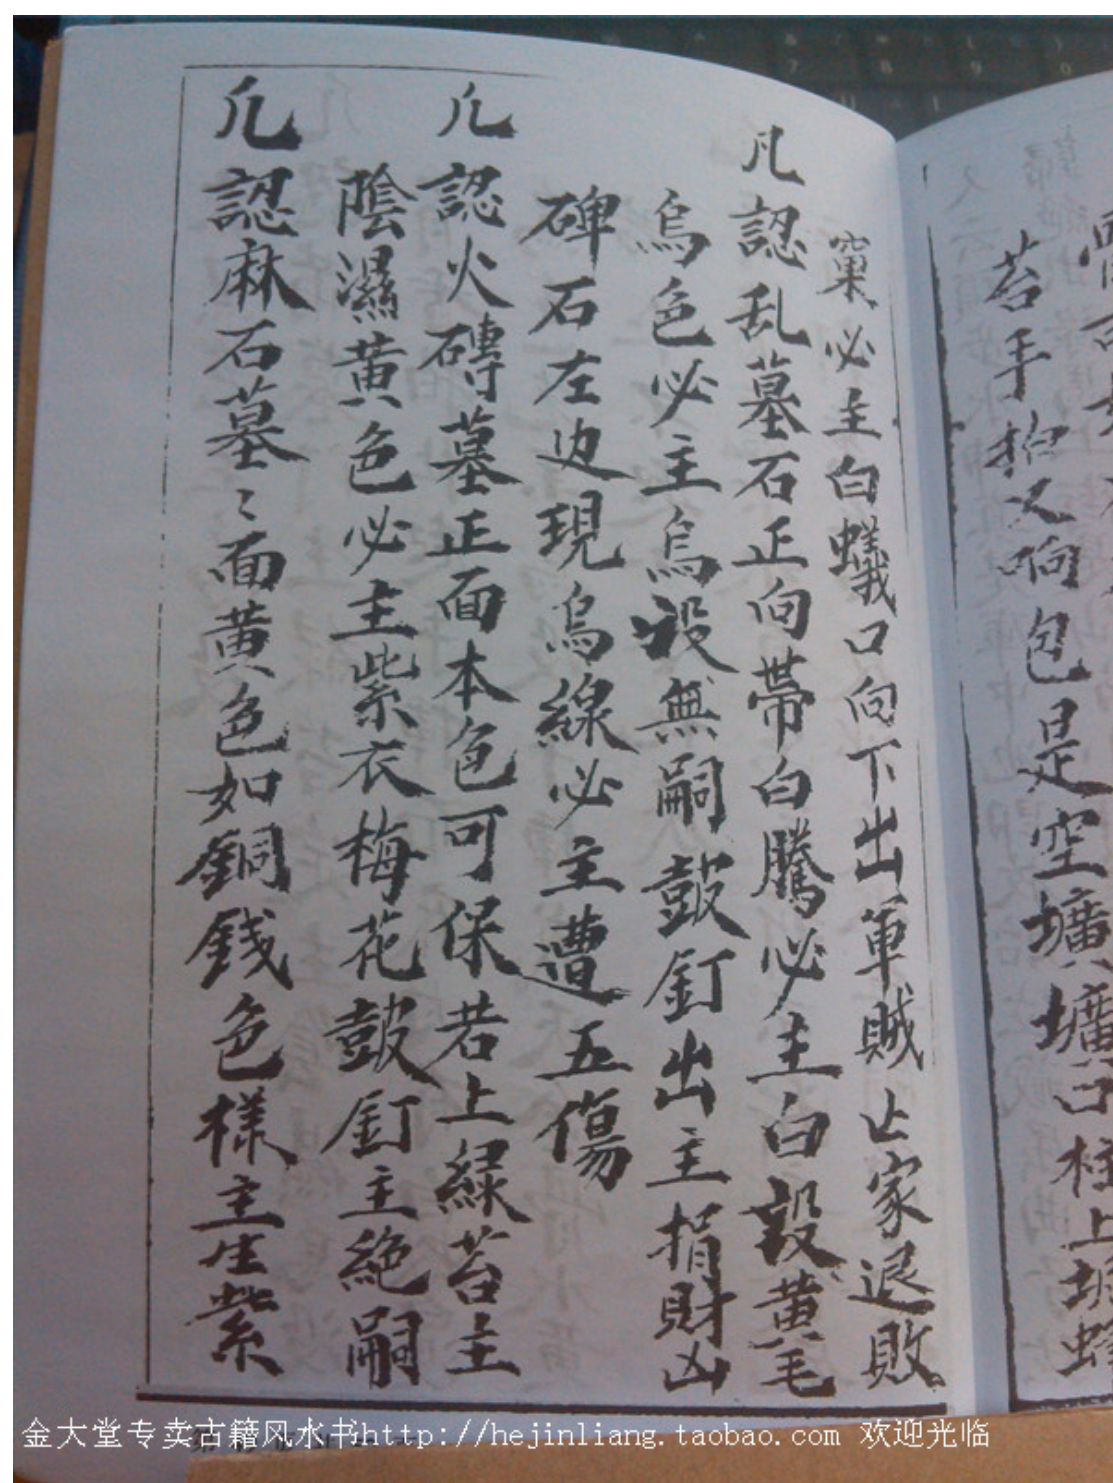 苔手拍又响包是空壙壙
窠必主白蟻口向下出軍賊亡家退敗
凡認乱墓石正向帶白騰必主白設黄毛
烏色必主烏設無嗣鼓釘出主捐財凶
碑石左边現烏線必主遭五傷
凢認火磚墓正面本色可保若上緑苔主
陰濕黄色必主紫衣梅花鼓釘主絶嗣
凢認麻石墓〻面黄色如銅銭色様主生紫
金大堂专卖古籍风水书http://hejinliang.taobao.com 欢迎光临